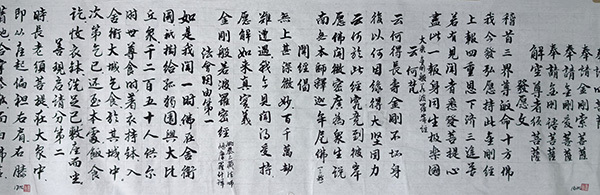 奉請金剛索菩薩
奉請金剛愛菩薩
奉請金剛語菩薩
發愿文
稽首三界尊歸命十方佛
我今發弘愿持此金剛經
上報四重恩下濟三途苦
若有見聞者悉發菩提心
盡此一報身同生極樂國
云何梵
云何得長壽金剛不坏身
復以何因緣得大堅固力
云何於此經究竟到彼岸
愿佛開微密廣為眾生說
南無本師釋迦牟尼佛
開經偈
無上甚深微妙百千萬劫
難遭遇我今見聞得受持
愿解如來真實義
金剛般若波羅密經
法會因由分第一
如是我聞一時佛在舍衛
國祇樹給孤獨園與大比
丘眾千二百五十人俱尔
时世尊食時著衣持鉢入
舍衛大城乞食於其城中
次第乞已还至本處飯食
訖收衣鉢洗足已敷座而坐
善現啟請分第二
時長老須菩提在大眾中
即從座起偏袒右肩右膝